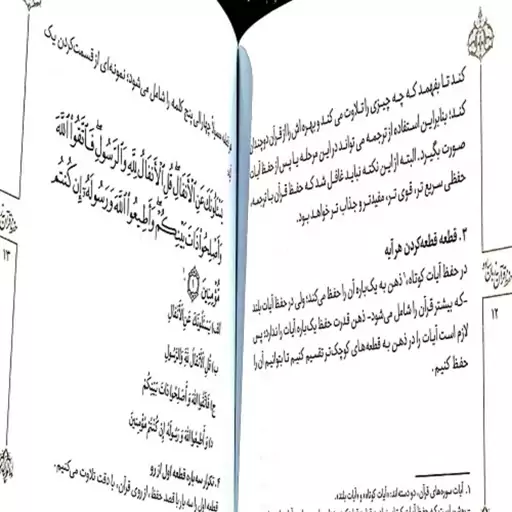 کند تا بفهمد که چه چیزی را تلاوت می کند و بهره اش را از قرآن دوچندان
کند؛ بنابراین استفاده از ترجمه می تواند در این مرحله یا پس از حفظ آیات
صورت بگیرد. البته از این نکته نباید غافل شد که حفظ قرآن با ترجمه،
حفظی سریع تر، قوی تر، مفیدتر و جذاب تر خواهد بود.
۳. قطعه قطعه‌کردن هر آیه
در حفظ آیات کوتاه،۱ ذهن به یک‌باره آن را حفظ می‌کند؛ ولی در حفظ آیات بلند
-که بیشتر قرآن را شامل می‌شود- ذهن قدرت حفظ یک‌باره آیات را ندارد؛ پس
لازم است آیات را در ذهن به قطعه‌های کوچک‌تر تقسیم کنیم تا بتوانیم آن را
حفظ کنیم.
۱. آیات سوره‌های قرآن، دو دسته اند: «آیات کوتاه» و «آیات بلند».
۱۲
چهار الی پنج کلمه را شامل می‌شود؛ نمونه‌ای از قسمت‌کردن یک
يَسْئَلُونَكَ عَنِ الْأَنْفَالِ قُلِ الْأَنْفَالُ لِلّٰهِ وَالرَّسُولِ فَاتَّقُوا اللّٰهَ
وَأَصْلِحُوا ذَاتَ بَيْنِكُمْ وَأَطِيعُوا اللّٰهَ وَرَسُولَهُ إِنْ كُنْتُمْ
مُؤْمِنِينَ ۱
الف) يَسْئَلُونَكَ عَنِ الْأَنْفَالِ
ب) قُلِ الْأَنْفَالُ لِلّٰهِ وَالرَّسُولِ
ج) فَاتَّقُوا اللّٰهَ وَ أَصْلِحُوا ذَاتَ بَيْنِكُمْ
د) وَ أَطِيعُوا اللّٰهَ وَ رَسُولَهُ إِنْ كُنْتُمْ مُؤْمِنِينَ
۴. تکرار سه باره قطعه اول از رو
قطعه اول را سه بار با قصد حفظ، از روی قرآن، با دقت تلاوت می‌کنیم.
۱۳